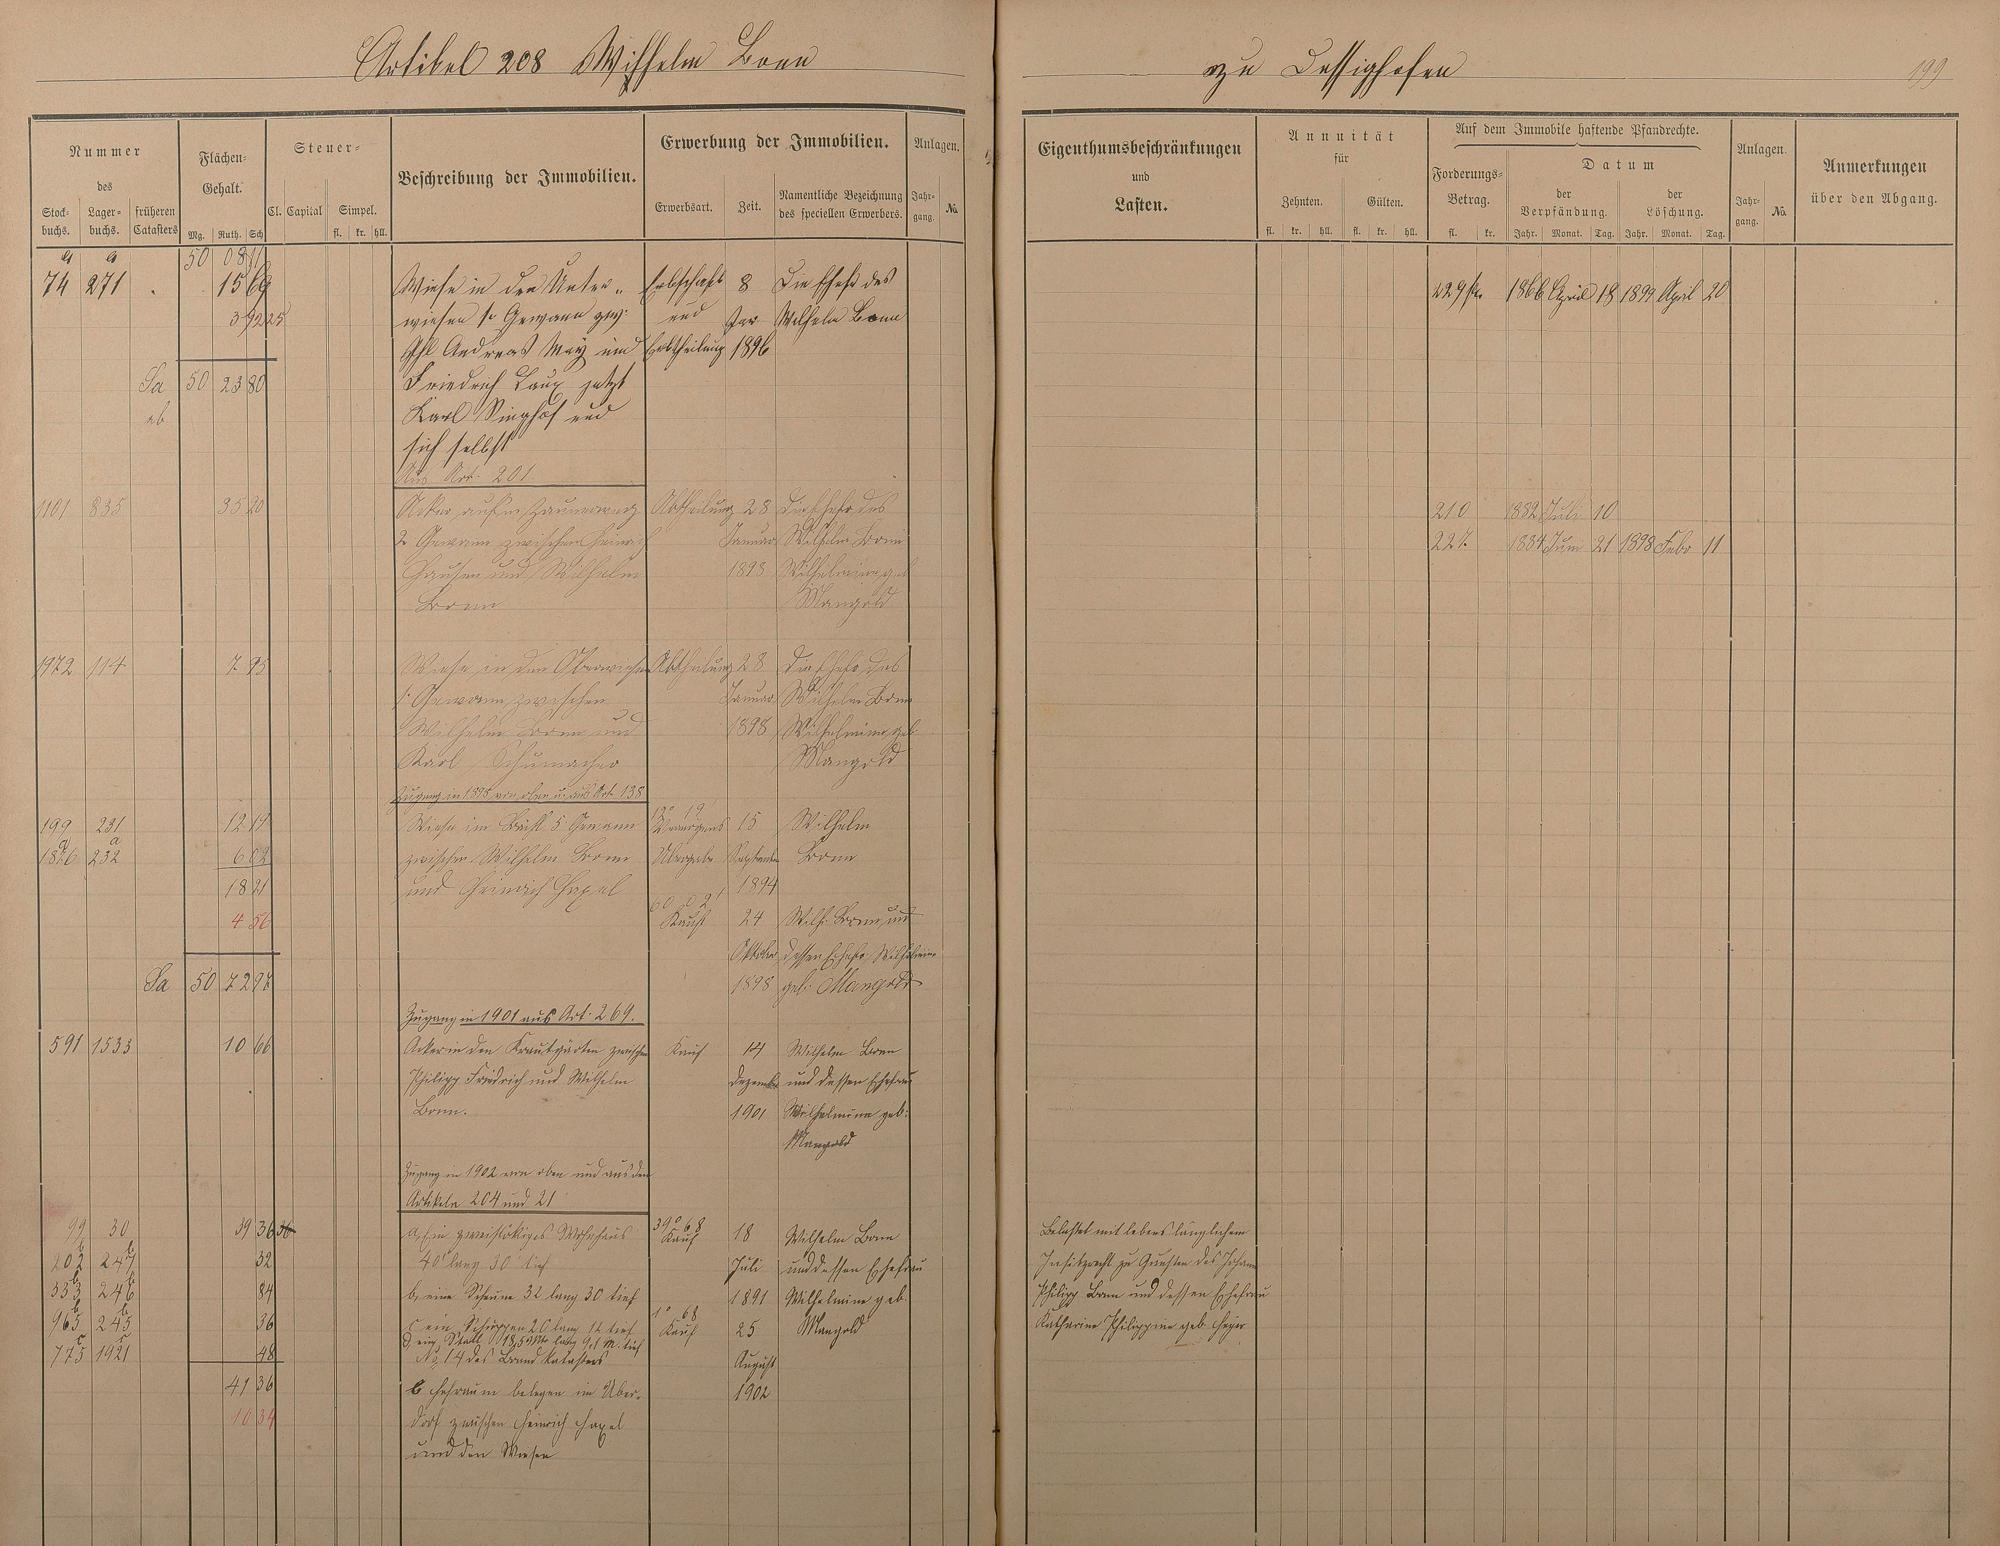 Artikel 208 Wilhelm Bonn
zu Dessighofen
199
Nummer
des
Stock-
buchs.
Lager-
buchs.
früheren
Catasters
Flächen-
Gehalt.
Mg. Ruth. Sch.
Steuer-
Cl. Capital Simpel.
fl. kr. hll.
Beschreibung der Immobilien.
Erwerbung der Immobilien.
Erwerbsart. Zeit.
Namentliche Bezeichnung
des speciellen Erwerbers.
Anlagen.
Jahr-
gang.
No.
Eigenthumsbeschränkungen
und
Lasten.
Annuität
für
Zehnten. Gülten.
fl. kr. hll. fl. kr. hll.
Auf dem Immobile haftende Pfandrechte.
Forderungs-
Betrag.
fl. kr.
Datum
der
Verpfändung.
der
Löschung.
Jahr. Monat. Tag. Jahr. Monat. Tag.
Anlagen.
Jahr-
gang.
No.
Anmerkungen
über den Abgang.
a a 50 08 11
74 271 15 69 Wiese in den Unter- Erbschaft 8 Die Ehefr des 1866 April 18 1899 April 20
3 92 25 wiesen 1r Gewann zw: und Jan Wilhelm Bonn
Phl Andreas May und Erbtheilung 1896
Sa 50 23 80 Friedrich Laux jetzt
ab Karl Singhof und
sich selbst
Aus Art. 201
1101 835 35 20 Acker aufm Zaunerweg Abtheilung 28 die Ehefr des 210 1882 Juli 10
2 Gewann zwischen Heinrich Januar Wilhelm Bonn 227. 1884 Juni 21 1898 Febr 11
Hausen und Wilhelm 1898 Wilhelmine geb
Bonn Mangold
1972 114 7 95 Wiese in den Oberwiesen Abtheilung 28 die Ehefr des
1. Gewann zwischen Januar Wilhelm Bonn
Wilhelm Bonn und 1898 Wilhelmine geb.
Karl Schumacher Mangold
Zugang in 1898 von oben u. aus Art. 138
199 231 12 19 Wiese im 5 Gewann Vermögens 15 Wilhelm
a a
1876 232 6 02 zwischen Wilhelm Bonn Übergabe September Bonn
18 21 und Heinrich Hapel 1894
4 56 Kauf 24 Wilh. Bonn und
Oktober dessen Ehefr Wilhelmine
Sa 50 72 97 1898 geb. Mangold
Zugang in 1901 aus Art. 269.
591 1533 10 66 Acker in den Krautgärten zwischen Kauf 14 Wilhelm Bonn
Philipp Friedrich und Wilhelm Dezember und dessen Ehefrau
Bonn. 1901 Wilhelmine geb.
Mangold
Zugang in 1902 von oben und aus den
Artikeln 204 und 21
99 30 39 36 a, Ein zweistökiges Wohnhaus 39° 68 Kauf 18 Wilhelm Bonn Belastet mit lebenslänglichem
202 247 32 40' lang 30' tief Juli und dessen Ehefrau Insitzrecht zu Gunsten des Johann
333 246 84 b, eine Scheune 32 lang 30 tief 1891 Wilhelmine geb. Philipp Bonn und dessen Ehefrau
965 245 36 c ein Schoppen 26 lang 12 tief 1° 68 Kauf 25 Mangold Katharine Philippine geb. Heyer
D, ein Stall lang tief
775 1921 48 No. 14 des Brand Katasters August
41 36 b Hofraum belegen im Ober- 1902
10 34 dorf zwischen Heinrich Hapel
und den Wiesen